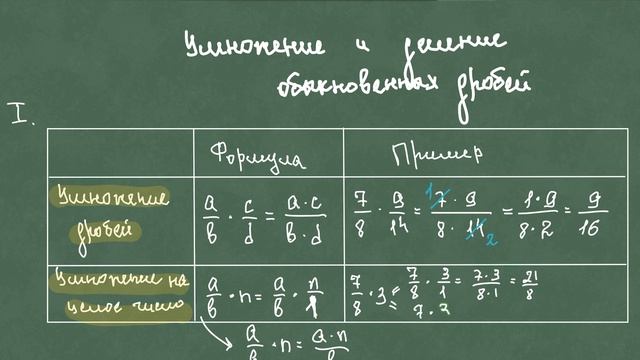 Умножение и деление
обыкновенных дробей
I.
Формула
Пример
Умножение
дробей
a/b · c/d = a·c/b·d
7/8 · 9/14 = 1 7·9/8·14 2 = 1·9/8·2 = 9/16
Умножение на
целое число
a/b · n = a/b · n/1
7/8 · 3 = 7/8 · 3/1 = 7·3/8·1 = 21/8
= 7 ·
a/b · n = a·n/b